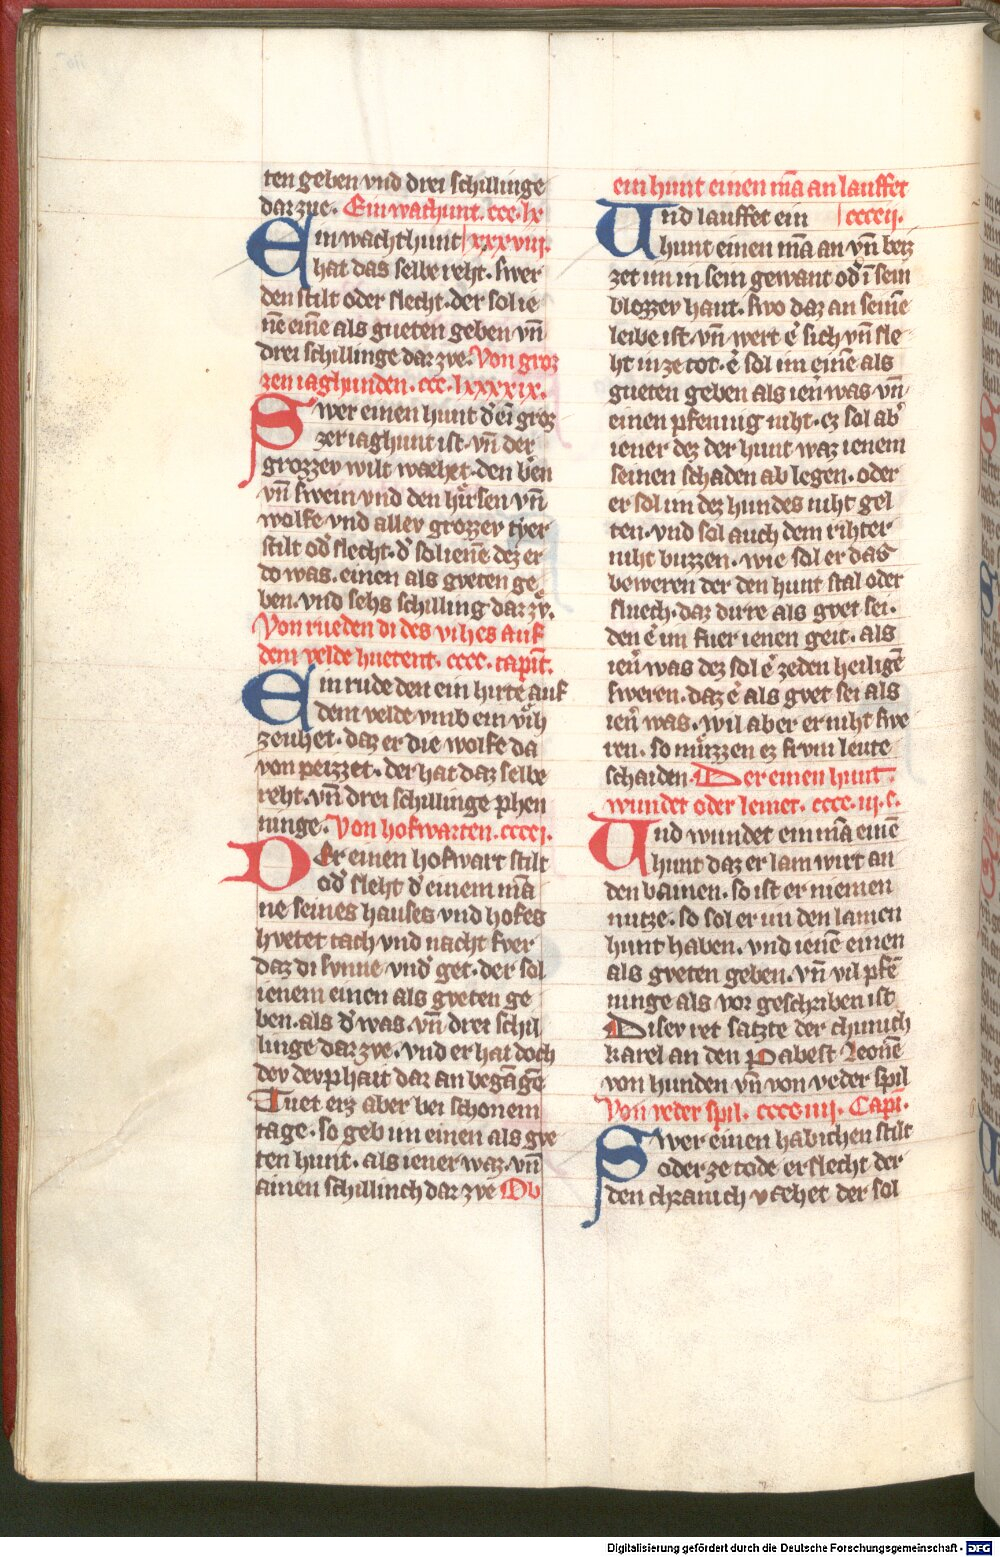 ten geben vnd drei schillinge
dar zue. Ein wachunt. ccc. lx
Ein wachthunt xxxviii.
hat das selbe reht. swer
den stilt oder slecht. der sol ie
nē eīne als gueten geben vn̄
drei schillinge dar zve. Von groz
zen iaghunden. ccc. lxxxxix.
Swer einen hunt d' ei groz
zer iaghunt ist. vn̄ der
grozzev wilt waehet. den bern
vn̄ swein vnd den hirsen vn̄
wolfe vnd allev grozzev tyer
stilt od' slecht. d' sol ienē dez er
do was. einen als gveten ge
ben. vnd sehs schilling dar zv.
Von rueden di des vihes auf
dem velde huetent. cccc. capit.
Ein rude den ein hirte auf
dem velde vmb ein vih
zeuhet. daz er die wolfe da
von peizzet. der hat daz selbe
reht. vn̄ drei schillinge phen
ninge. Von hofwarten. cccci.
Der einen hofwart stilt
od' sleht d' einem mā
ne seines hauses vnd hofes
hvetet tach vnd nacht swer
daz di svnne vnd' get. der sol
ienem einen als gveten ge
ben. als d' was. vn̄ drei schil
linge dar zve. vnd er hat doch
dev devphait dar an begāgē
Tuet erz aber bei schonem
tage. so geb im einen als gve
ten hunt. als iener waz. vn̄
ainen schillinch dar zve Ob
ein hunt einen mā an lauffet
Und lauffet ein ccccii.
hunt einen mā an vn̄ beiz
zet im in sein gewant od' ī sein
blozzev haut. swo daz an seinē
leibe ist. vn̄ wert e' sich vn̄ sle
ht in ze tot. e' sol im einē als
gueten geben als ien' was vn̄
einen pfennig niht. ez sol ab'
iener dez der hunt waz ienem
seinen schaden ab legen. oder
er sol im dez hundes niht gel
ten. vnd sol auch dem rihter
niht buzzen. wie sol er das
beweren der den hunt stal oder
sluech. daz dirre als gvet sei.
den e' im fuer ienen geit. als
ien' was dez sol e' ze den heiligē
sweren. daz e' als gvet sei als
ien' was. wil aber er niht swe
ren. so muzzen ez frvm leute
schaiden. Der einen hunt
wundet oder lemet. cccc. iii. c.
Und wundet ein mā einē
hunt daz er lam wirt an
den bainen. so ist er niemen
nutze. so sol er im den lamen
hunt haben. vnd ienē einen
als gveten geben. vn̄ vil pfē
ninge als vor geschriben ist
Disev ret satzte der chunich
karel an den pabest Leonē
von hunden vn̄ von veder spil
Von veder spil. cccc iiii. Capi.
Swer einen habichen stilt
oder ze tode er slecht der
den chranich vaehet der sol
Digitalisierung gefördert durch die Deutsche Forschungsgemeinschaft - DFG